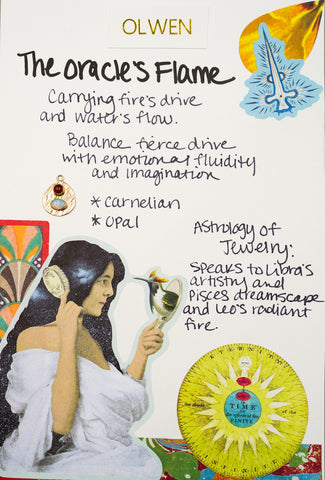 OLWEN
The Oracle's Flame
Carrying fire's drive
and water's flow.
Balance fierce drive
with emotional fluidity
and Imagination
* Carnelian
* Opal
Astrology of
Jewelry:
Speaks to Libra's
artistry and
Pisces dreamscape
and Leo's radiant
fire.
TIME
the sphere of the
FINITE
of the
INFINITE